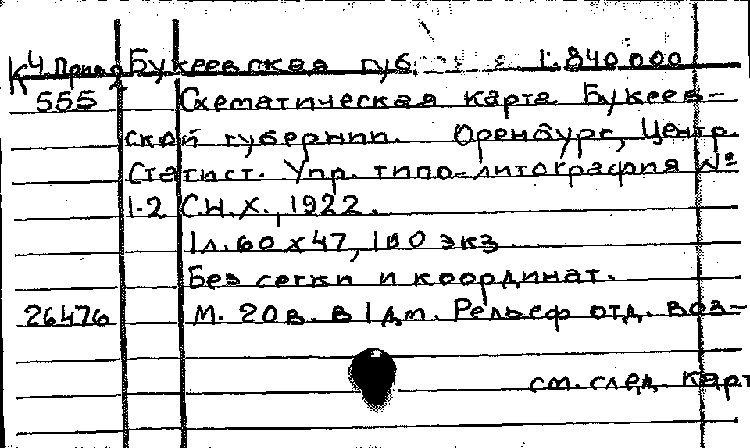 К4 Прик Букеевская губ. 1:840.000
555 Схематическая карта Букеев-
ской губернии. Оренбург, Центр.
Статист. Упр. типо-литография №
1-2 С.Н.Х., 1922.
1л. 60 х 47, 100 экз
Без сетки и координат.
26476 М. 20 в. в 1 дм. Рельеф отд. воз-
см. след. карт